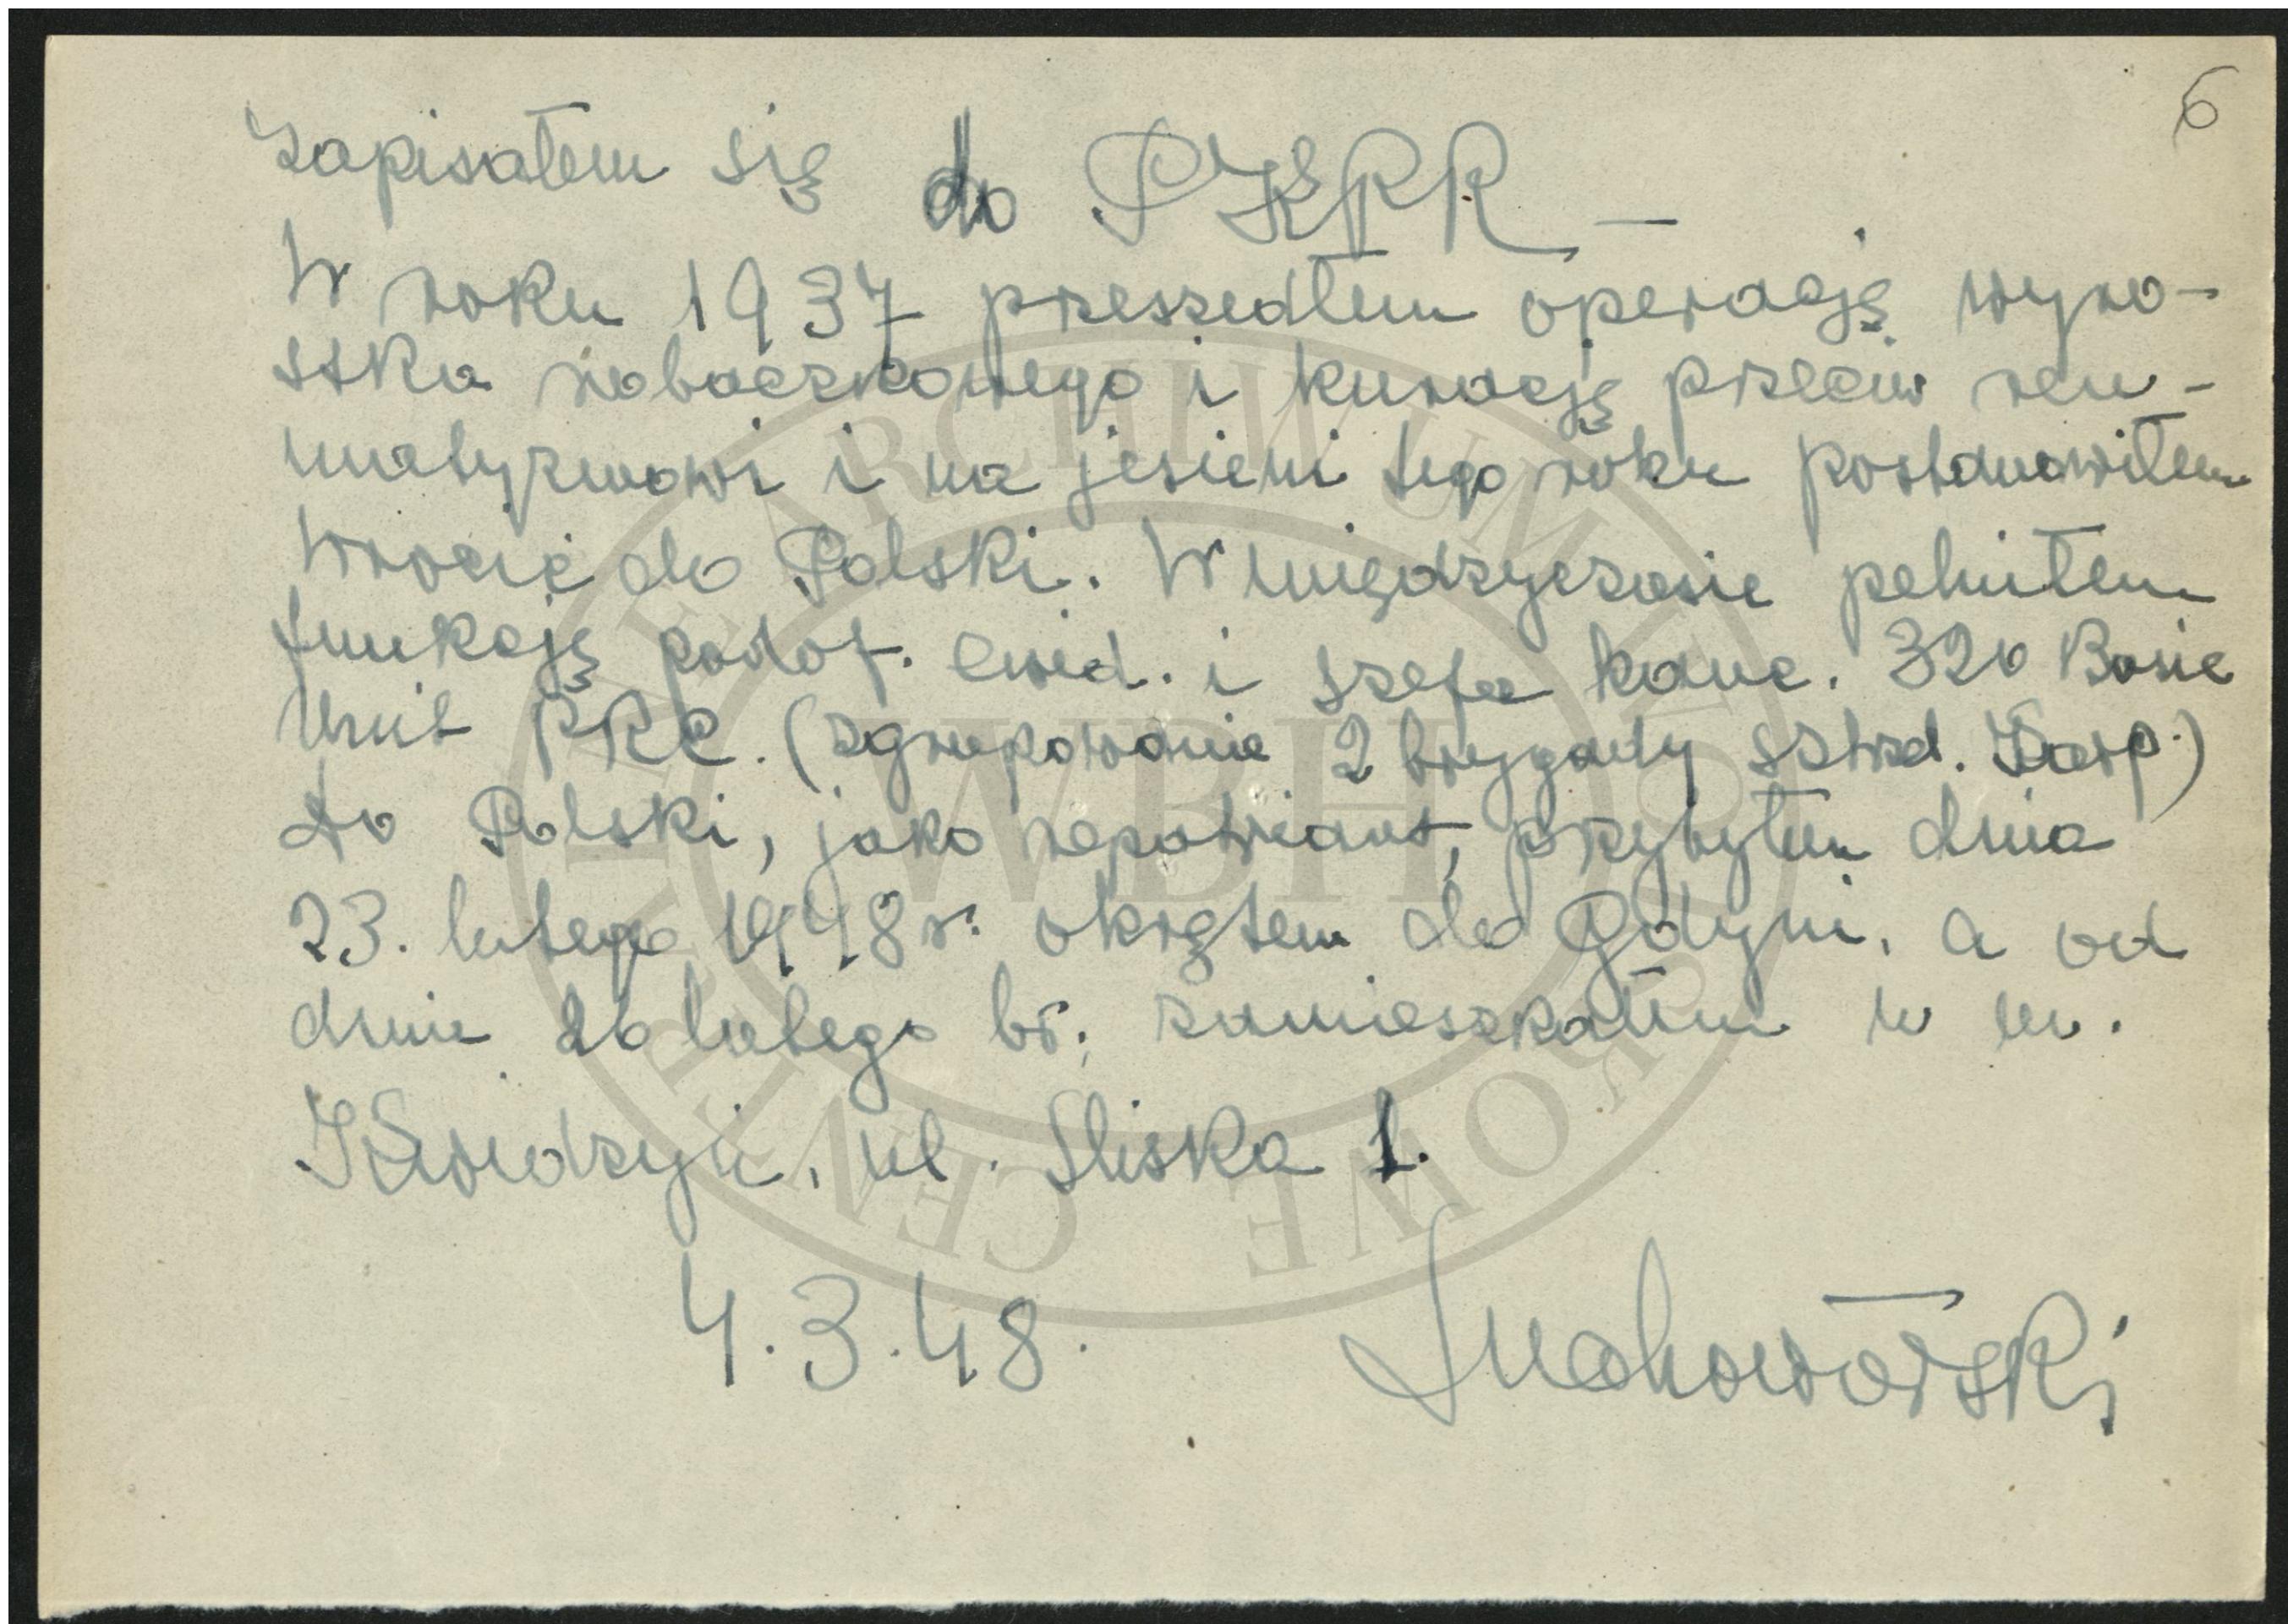 6
Zapisałem się do PKPR –
W roku 1937 przeszedłem operację wyro-
stka robaczkowego i kurację przeciw reu-
matyzmowi i na jesieni tego roku postanowiłem
wrócić do Polski. W międzyczasie pełniłem
funkcję podof. ewid. i szefa kanc. 320 Basic
Unit PRC. (zgrupowanie 2 brygady strzel. Karp.)
do Polski, jako repatriant, przybyłem dnia
23. lutego 1948 r. okrętem do Gdyni, a od
dnia 26 lutego br. zamieszkałem w m.
Kwidzyń, ul. Śliska 1.
4.3.48.
CENTRALNE ARCHIWUM WOJSKOWE
WBH